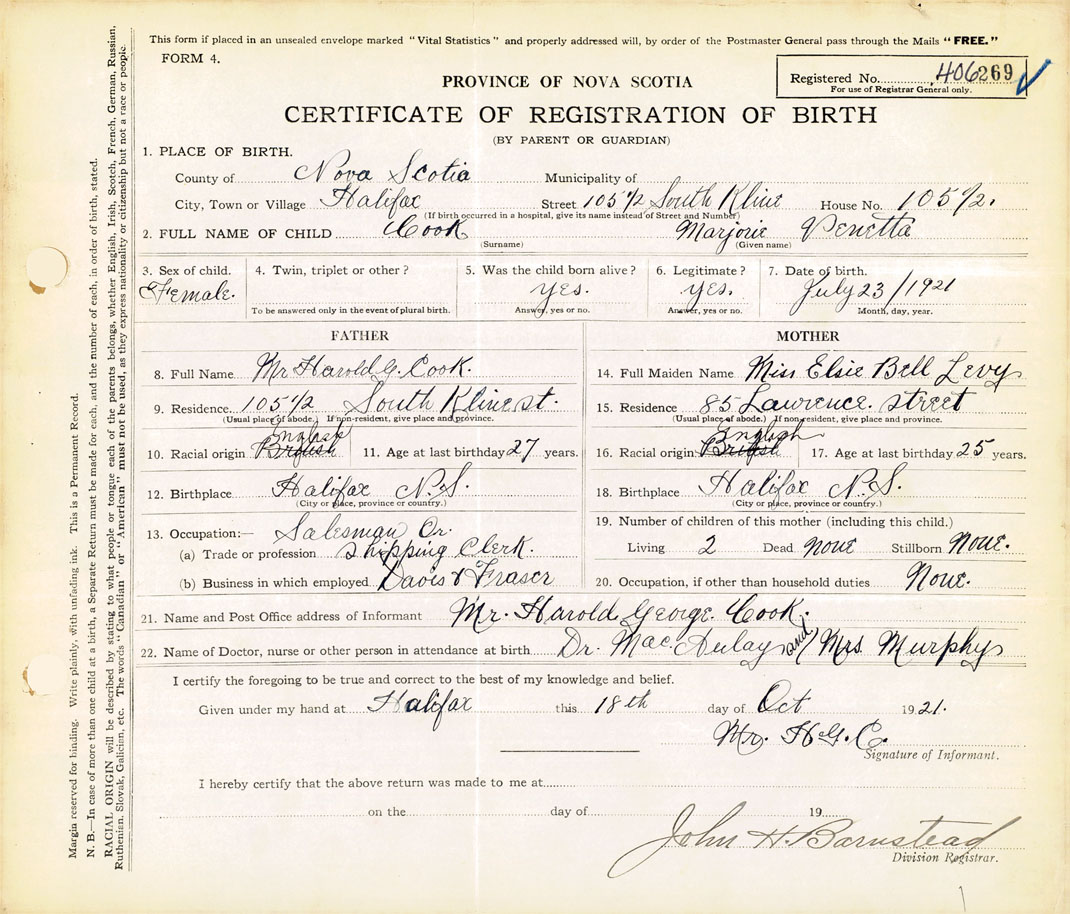 This form if placed in an unsealed envelope marked "Vital Statistics" and properly addressed will, by order of the Postmaster General pass through the Mails "FREE."
FORM 4.
Registered No. 406269
For use of Registrar General only.
PROVINCE OF NOVA SCOTIA
CERTIFICATE OF REGISTRATION OF BIRTH
(BY PARENT OR GUARDIAN)
1. PLACE OF BIRTH.
County of Nova Scotia Municipality of
City, Town or Village Halifax Street 105 1/2 South Kline House No. 105 1/2.
(If birth occurred in a hospital, give its name instead of Street and Number)
2. FULL NAME OF CHILD Cook Marjorie Venetta
(Surname) (Given name)
3. Sex of child. 4. Twin, triplet or other? 5. Was the child born alive? 6. Legitimate? 7. Date of birth.
Female. yes. yes. July 23/1921
To be answered only in the event of plural birth. Answer, yes or no. Answer, yes or no. Month, day, year.
FATHER MOTHER
8. Full Name Mr Harold G. Cook. 14. Full Maiden Name Miss Elsie Bell Levy
9. Residence 105 1/2 South Kline st. 15. Residence 85 Lawrence. street
(Usual place of abode. If non-resident, give place and province. (Usual place of abode.) If non-resident, give place and province.
English English
10. Racial origin British 11. Age at last birthday 27 years. 16. Racial origin British 17. Age at last birthday 25 years.
12. Birthplace Halifax N.S. 18. Birthplace Halifax N.S.
(City or place, province or country.) (City or place, province or country.)
13. Occupation:— Salesman Or 19. Number of children of this mother (including this child.)
(a) Trade or profession Shipping Clerk. Living 2 Dead none Stillborn None.
(b) Business in which employed Davis & Fraser 20. Occupation, if other than household duties None.
21. Name and Post Office address of Informant Mr. Harold George. Cook.
22. Name of Doctor, nurse or other person in attendance at birth Dr. Mac. Aulay and Mrs Murphy
I certify the foregoing to be true and correct to the best of my knowledge and belief.
Given under my hand at Halifax this 18th day of Oct 1921.
Mr. H.G.C.
Signature of Informant.
I hereby certify that the above return was made to me at
on the day of 19
John H. Barnstead
Division Registrar.
Margin reserved for binding. Write plainly, with unfading ink. This is a Permanent Record.
N. B.—In case of more than one child at a birth, a Separate Return must be made for each, and the number of each, in order of birth, stated.
RACIAL ORIGIN will be described by stating to what people or tongue each of the parents belongs, whether English, Irish, Scotch, French, German, Russian,
Ruthenian, Slovak, Galician, etc. The words "Canadian" or "American" must not be used, as they express nationality or citizenship but not a race or people.